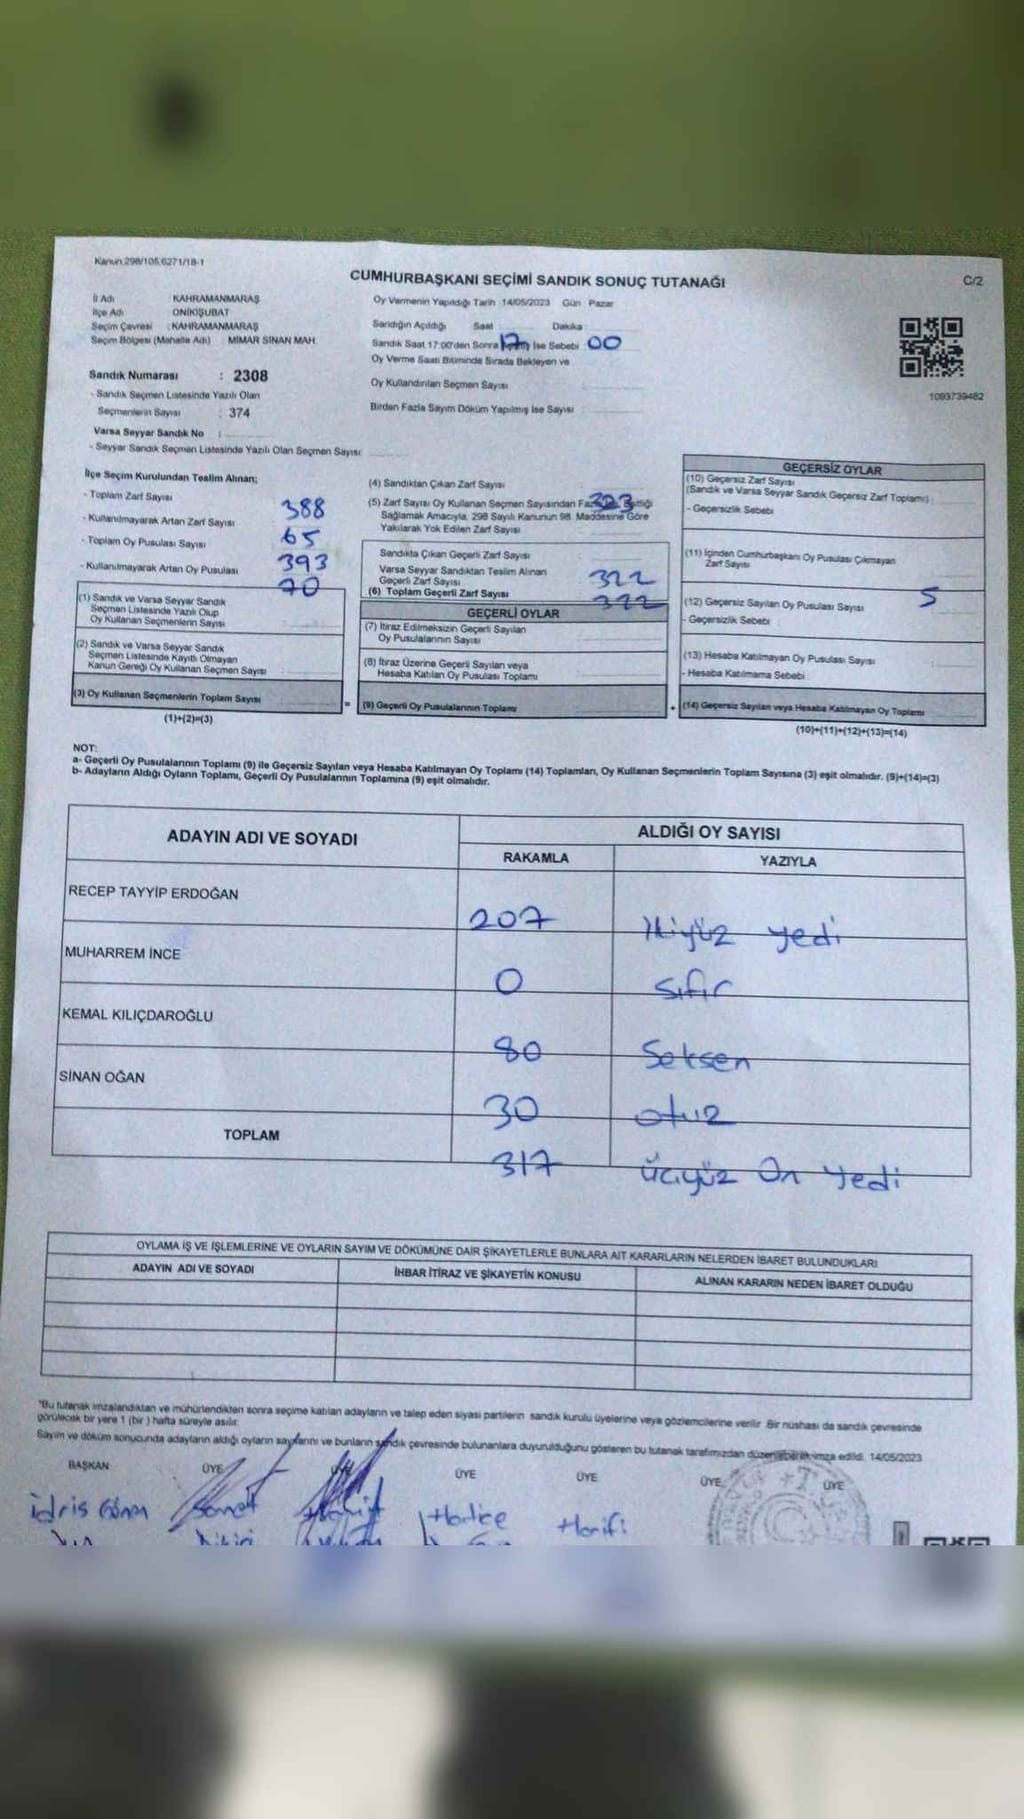 Kanun:298/105,6271/18-1
CUMHURBAŞKANI SEÇİMİ SANDIK SONUÇ TUTANAĞI
C/2
İl Adı KAHRAMANMARAŞ
İlçe Adı ONİKİŞUBAT
Seçim Çevresi : KAHRAMANMARAŞ
Seçim Bölgesi (Mahalle Adı) MİMAR SİNAN MAH.
Oy Vermenin Yapıldığı Tarih 14/05/2023 Gün Pazar
Sandığın Açıldığı Saat Dakika
Sandık Saat 17:00'den Sonra 17 İse Sebebi : 00
Oy Verme Saati Bitiminde Sırada Bekleyen ve
Oy Kullandırılan Seçmen Sayısı
Birden Fazla Sayım Döküm Yapılmış İse Sayısı
1093739482
Sandık Numarası : 2308
- Sandık Seçmen Listesinde Yazılı Olan
Seçmenlerin Sayısı : 374
Varsa Seyyar Sandık No :
- Seyyar Sandık Seçmen Listesinde Yazılı Olan Seçmen Sayısı
İlçe Seçim Kurulundan Teslim Alınan;
- Toplam Zarf Sayısı 388
- Kullanılmayarak Artan Zarf Sayısı 65
- Toplam Oy Pusulası Sayısı 393
- Kullanılmayarak Artan Oy Pusulası 70
(1) Sandık ve Varsa Seyyar Sandık
Seçmen Listesinde Yazılı Olup
Oy Kullanan Seçmenlerin Sayısı
(2) Sandık ve Varsa Seyyar Sandık
Seçmen Listesinde Kayıtlı Olmayan
Kanun Gereği Oy Kullanan Seçmen Sayısı
(3) Oy Kullanan Seçmenlerin Toplam Sayısı
(1)+(2)=(3)
=
(4) Sandıktan Çıkan Zarf Sayısı 323
(5) Zarf Sayısı Oy Kullanan Seçmen Sayısından
Sağlamak Amacıyla, 298 Sayılı Kanunun 98. Maddesine Göre
Yakılarak Yok Edilen Zarf Sayısı
Sandıkta Çıkan Geçerli Zarf Sayısı 322
Varsa Seyyar Sandıktan Teslim Alınan
Geçerli Zarf Sayısı
(6) Toplam Geçerli Zarf Sayısı 322
GEÇERLİ OYLAR
(7) İtiraz Edilmeksizin Geçerli Sayılan
Oy Pusulalarının Sayısı
(8) İtiraz Üzerine Geçerli Sayılan veya
Hesaba Katılan Oy Pusulası Toplamı
(9) Geçerli Oy Pusulalarının Toplamı
+
GEÇERSİZ OYLAR
(10) Geçersiz Zarf Sayısı
(Sandık ve Varsa Seyyar Sandık Geçersiz Zarf Toplamı)
- Geçersizlik Sebebi
(11) İçinden Cumhurbaşkanı Oy Pusulası Çıkmayan
Zarf Sayısı
(12) Geçersiz Sayılan Oy Pusulası Sayısı 5
- Geçersizlik Sebebi
(13) Hesaba Katılmayan Oy Pusulası Sayısı
- Hesaba Katılmama Sebebi
(14) Geçersiz Sayılan veya Hesaba Katılmayan Oy Toplamı
(10)+(11)+(12)+(13)=(14)
NOT:
a- Geçerli Oy Pusulalarının Toplamı (9) ile Geçersiz Sayılan veya Hesaba Katılmayan Oy Toplamı (14) Toplamları, Oy Kullanan Seçmenlerin Toplam Sayısına (3) eşit olmalıdır. (9)+(14)=(3)
b- Adayların Aldığı Oyların Toplamı, Geçerli Oy Pusulalarının Toplamına (9) eşit olmalıdır.
ADAYIN ADI VE SOYADI
ALDIĞI OY SAYISI
RAKAMLA
YAZIYLA
RECEP TAYYİP ERDOĞAN 207 İkiyüz yedi
MUHARREM İNCE 0 sıfır
KEMAL KILIÇDAROĞLU 80 Seksen
SİNAN OĞAN 30 otuz
TOPLAM 317 üçyüz On yedi
OYLAMA İŞ VE İŞLEMLERİNE VE OYLARIN SAYIM VE DÖKÜMÜNE DAİR ŞİKAYETLERLE BUNLARA AİT KARARLARIN NELERDEN İBARET BULUNDUKLARI
ADAYIN ADI VE SOYADI
İHBAR İTİRAZ VE ŞİKAYETİN KONUSU
ALINAN KARARIN NEDEN İBARET OLDUĞU
"Bu tutanak imzalandıktan ve mühürlendikten sonra seçime katılan adayların ve talep eden siyasi partilerin sandık kurulu üyelerine veya gözlemcilerine verilir. Bir nüshası da sandık çevresinde
görülecek bir yere 1 (bir) hafta süreyle asılır.
Sayım ve döküm sonucunda adayların aldığı oyların sayılarını ve bunların sandık çevresinde bulunanlara duyurulduğunu gösteren bu tutanak tarafımızdan düzenlenerek imza edildi. 14/05/2023
BAŞKAN ÜYE ÜYE ÜYE ÜYE ÜYE ÜYE
idris Hatice